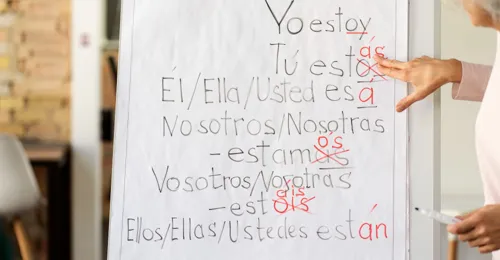 Yo estoy
ás
Tú estó
Él/Ella/Usted esá
Nosotros/Nosotras
os
- estamis
Vosotros/Nosotras
éis
- estóis
Ellos/Ellas/Ustedes están